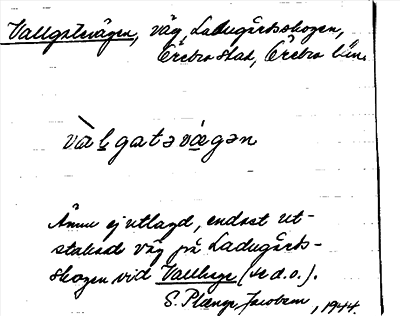 Vallgatevägen, väg, Ladugårdsskogen,
Örebro stad, Örebro län.
vàlgatəvägən
Ännu ej utlagd, endast ut-
stakad väg på Ladugårds-
skogen vid Vallhage (se d.o.).
S. Plænge Jacobson, 1944.